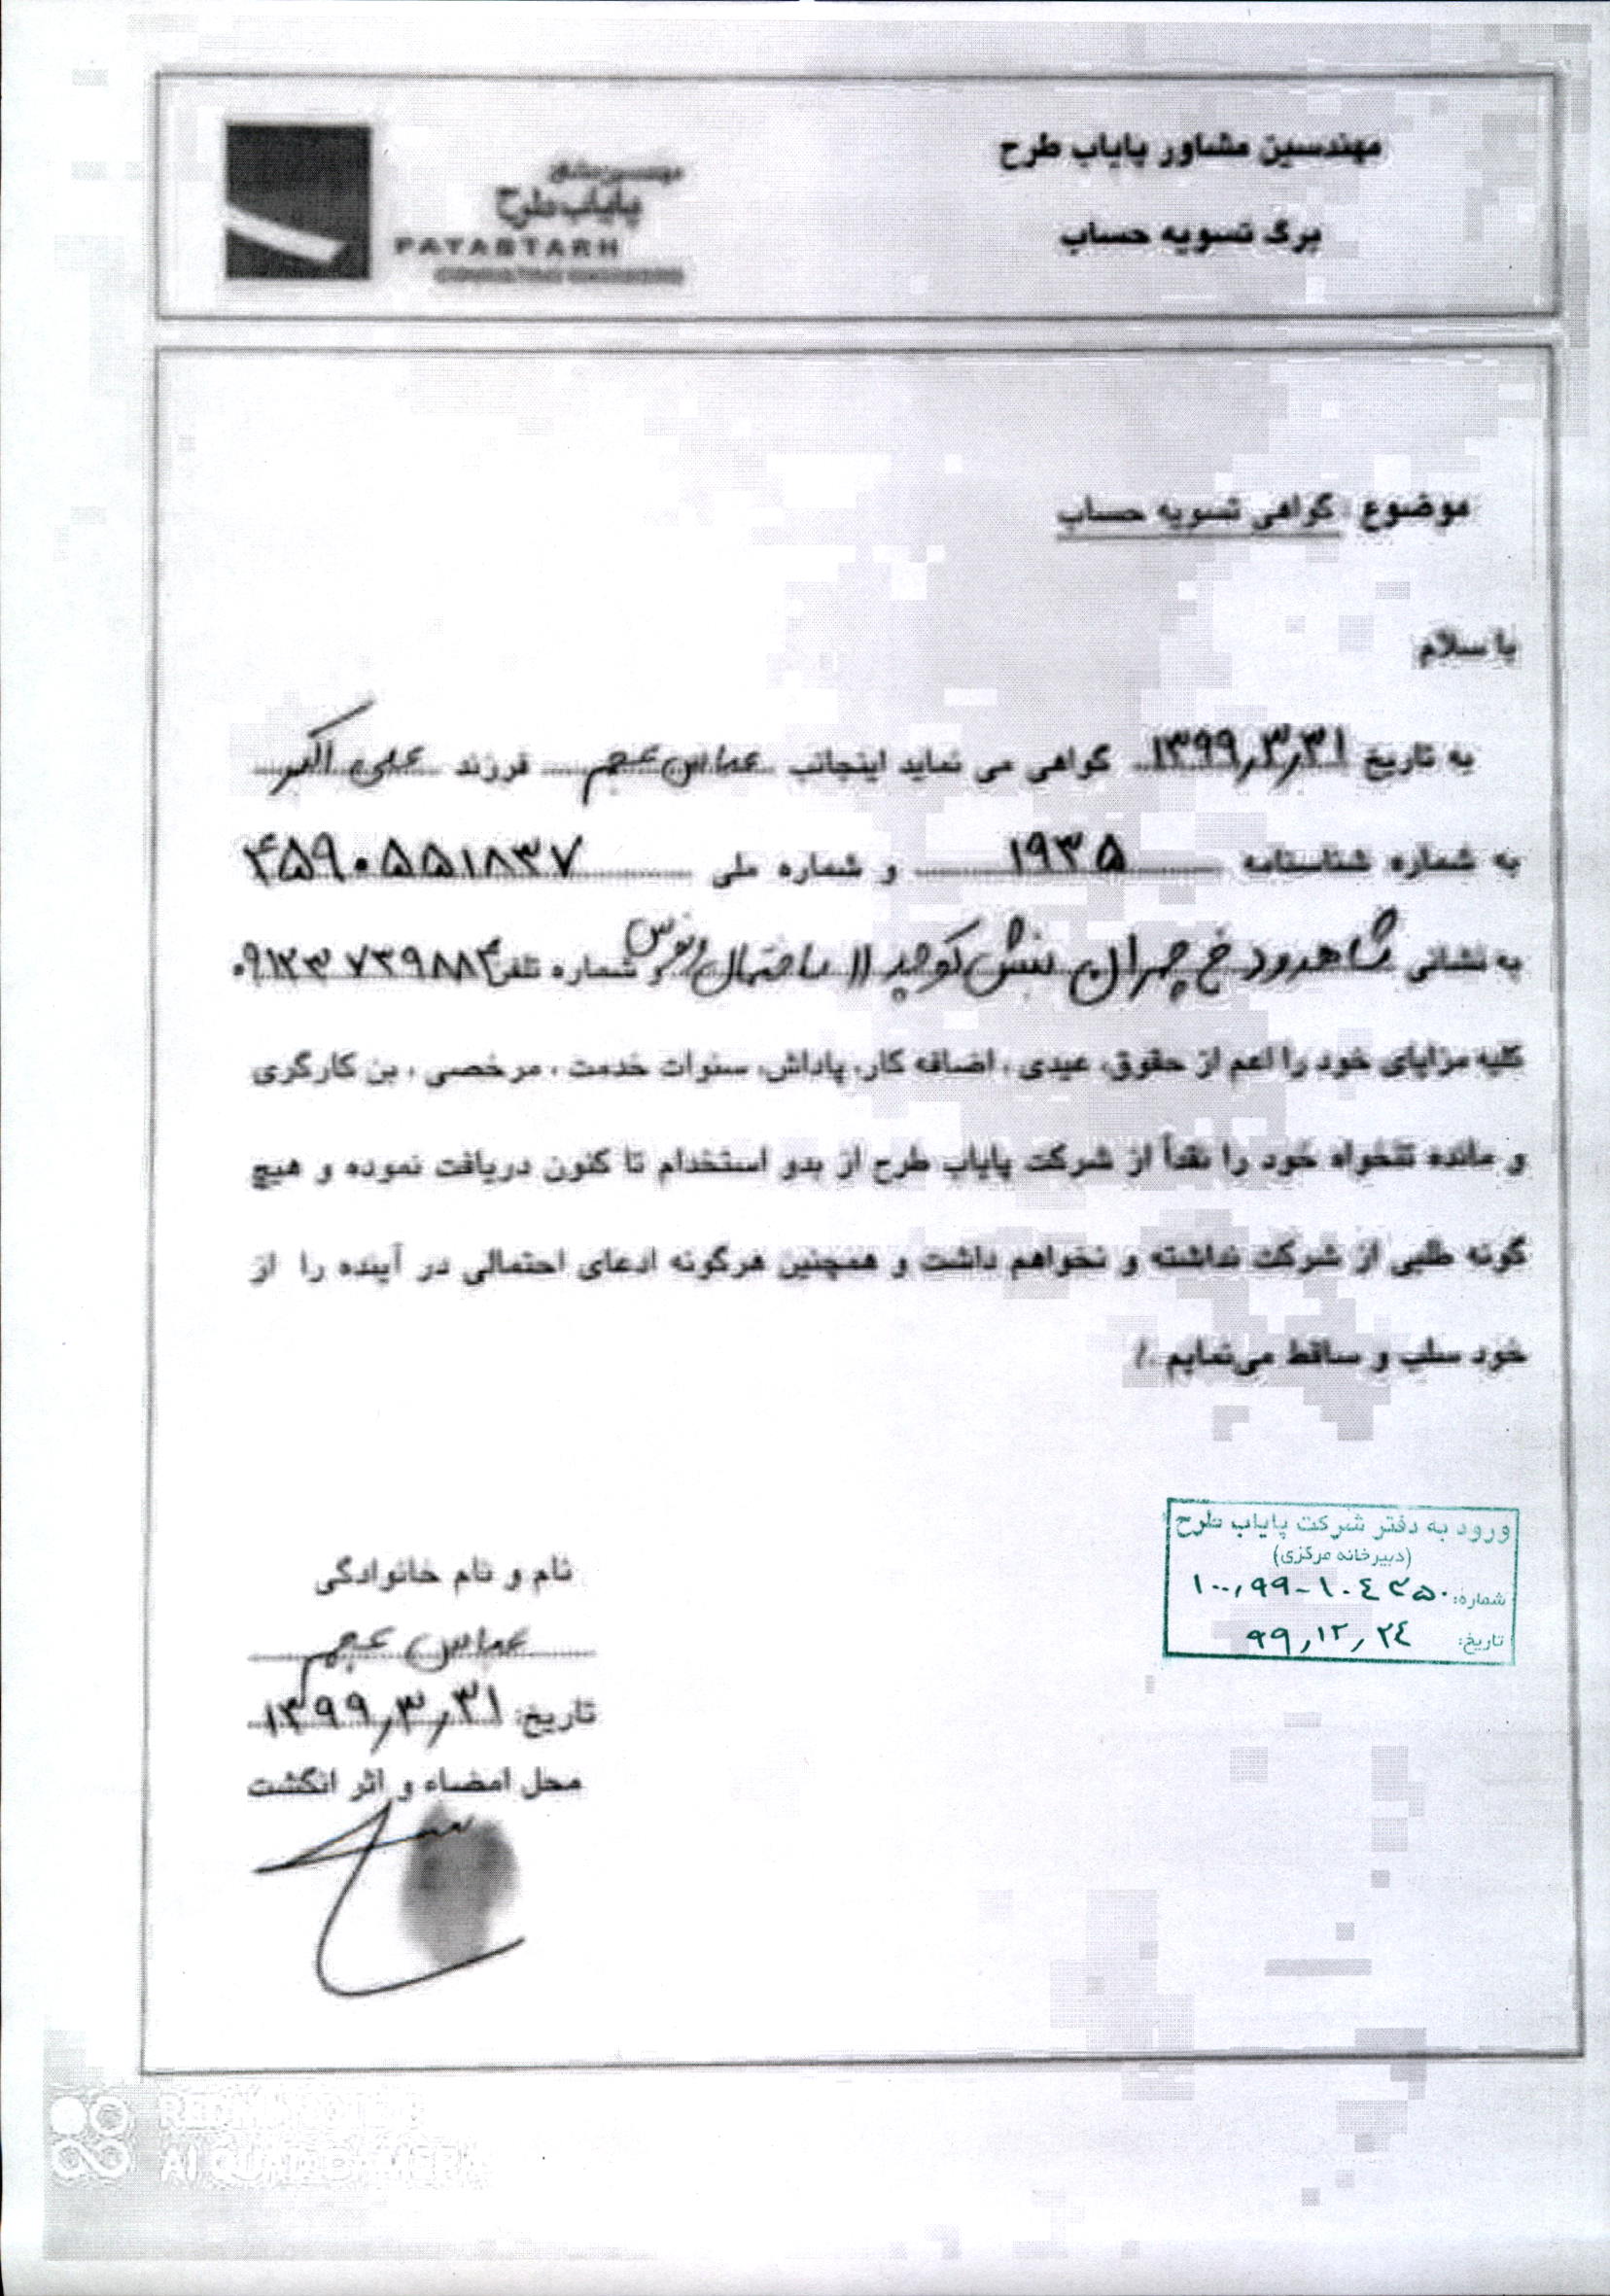 مهندسین مشاور پایاب طرح
برگ تسویه حساب
مهندسین مشاور
پایاب طرح
PAYABTARH
CONSULTING ENGINEERS
موضوع: گواهی تسویه حساب
با سلام
به تاریخ ۱۳۹۹٫۳٫۳۱ گواهی می نماید اینجانب عباس عجم فرزند علی اکبر
به شماره شناسنامه ۱۹۳۵ و شماره ملی ۴۵۹۰۵۵۱۸۳۷
به نشانی شاهرود خ چمران نبش کوچه ۱۱ ساختمان ونوس و شماره تلفن ۰۹۱۲۳۷۳۹۸۸۴
کلیه مزایای خود را اعم از حقوق، عیدی، اضافه کار، پاداش، سنوات خدمت، مرخصی، بن کارگری
و مانده تنخواه خود را نقداً از شرکت پایاب طرح از بدو استخدام تا کنون دریافت نموده و هیچ
گونه طلبی از شرکت نداشته و نخواهم داشت و همچنین هرگونه ادعای احتمالی در آینده را از
خود سلب و ساقط می‌نمایم ./
ورود به دفتر شرکت پایاب طرح
(دبیرخانه مرکزی)
شماره: ۱۰۰٫۹۹-۱۰۴۳۵۰
تاریخ: ۹۹٫۱۲٫۲۴
نام و نام خانوادگی
عباس عجم
تاریخ: ۱۳۹۹٫۳٫۳۱
محل امضاء و اثر انگشت
REDMI NOTE 8
AI QUAD CAMERA